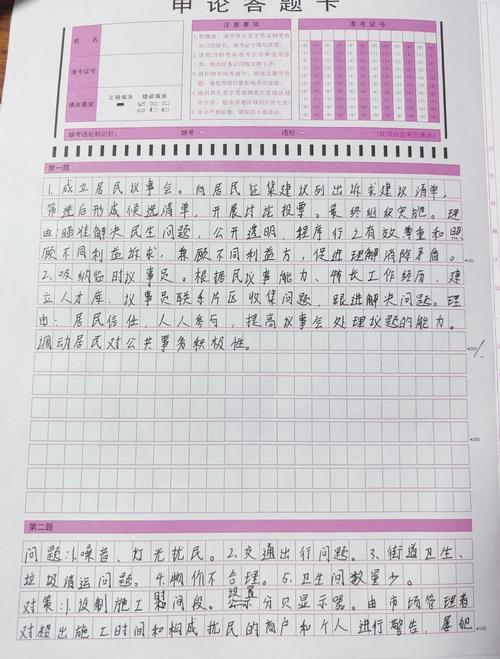 申论答题卡
姓名
准考证号
填涂要求
正确填涂 错误填涂
注意事项
准考证号
缺考违纪标记栏: 缺考 违纪
第一题
1.成立居民议事会。向居民征集建议列出诉求建议清单,
筛选后形成候选清单,开展讨论投票。最终组织实施。理
由:瞄准解决民生问题,公开透明,程序行之有效尊重和照
顾不同利益诉求,兼顾不同利益方,促进理解消除矛盾。
2.吸纳临时议事员。根据居民议事能力、特长工作经历,建
立人才库,议事员联系片区收集问题,跟进解决问题。理
由:居民信任,人人参与,提高议事会处理议题的能力。
调动居民对公共事务积极性。
第二题
问题:1.噪音、灯光扰民。2.交通出行问题。3.街道卫生、
垃圾清运问题。4.物价不合理。5.卫生间数量少。
对策:1.设制施工时间段。设置公示分贝显示器。由市场管理者
对超出施工时间和构成扰民的商户和个人进行警告,屡犯